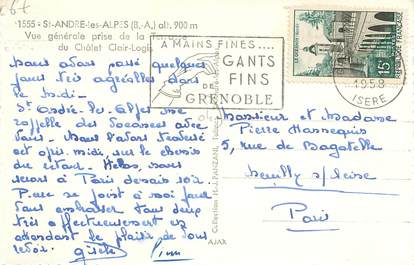 1555 - St-ANDRE-les-ALPES (B.-A.) alt. 900 m
Vue générale prise de la Terrasse
du Châlet Clair-Logis
A MAINS FINES....
GANTS
FINS
DE
GRENOBLE
15F
1958
ISERE
Nous avons passé quelques
jours très agréables dans
le Midi -
St André les Alpes
rappelle des Vacances avec
Nous l'avons traversé
cet après midi sur le chemin
du retour. Hélas, nous
serons à Paris demain soir.
Pierre se joint à moi pour
vous embrasser tous deux
très affectueusement en
attendant le plaisir de vous
revoir.
Monsieur et Madame
Pierre Hannequin
5, rue de Bagatelle
Neuilly s/Seine
Paris
Collection H.-J. PANZANI
AJAX